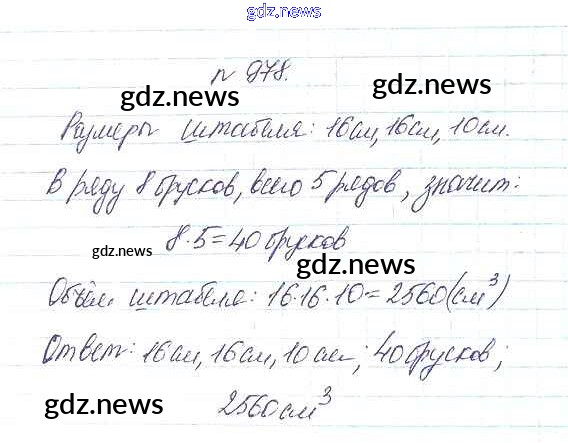 gdz.news
n 978.
gdz.news
gdz.news
Размеры штабеля: 16см, 16см, 10см.
В ряду 8 брусков, всего 5 рядов, значит:
8·5=40 брусков
gdz.news
gdz.news
Объём штабеля: 16·16·10=2560(см³)
Ответ: 16см, 16см, 10см; 40 брусков;
2560см³
gdz.news
gdz.news